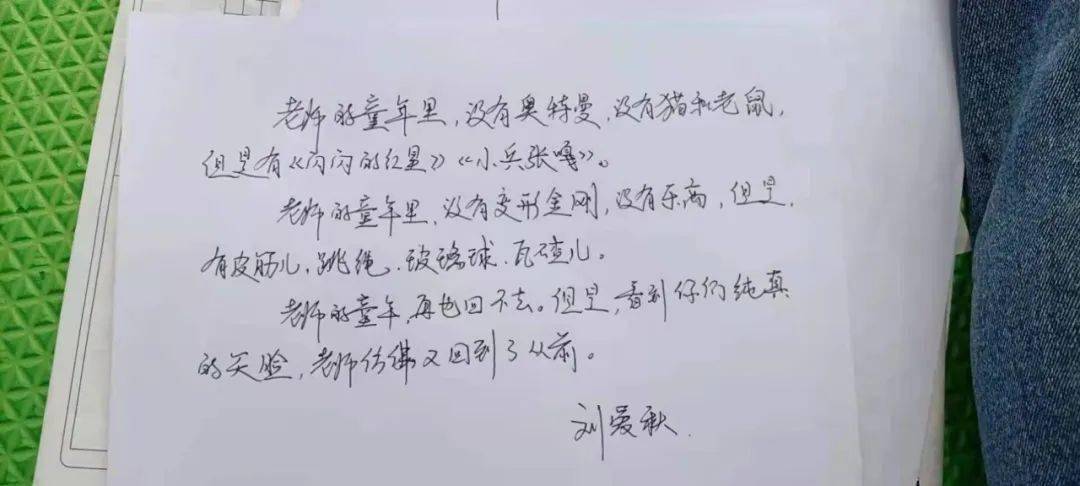 老师的童年里，没有奥特曼，没有猫和老鼠，
但是有《闪闪的红星》《小兵张嘎》。
老师的童年里，没有变形金刚，没有乐高，但是，
有皮筋儿、跳绳、玻璃球、瓦碴儿。
老师的童年，再也回不去。但是，看到仔们纯真
的笑脸，老师仿佛又回到了从前。
刘爱秋